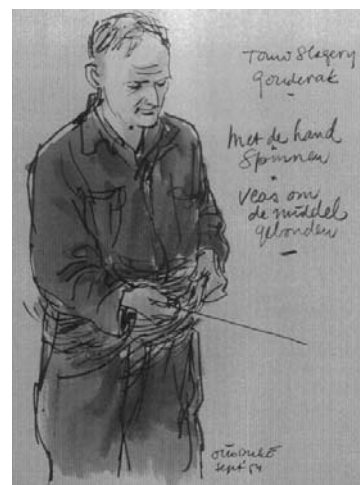 Touwslagery
Gouderak
Met de hand
Spinnen
Vlas om
de middel
gebonden
sept' 54